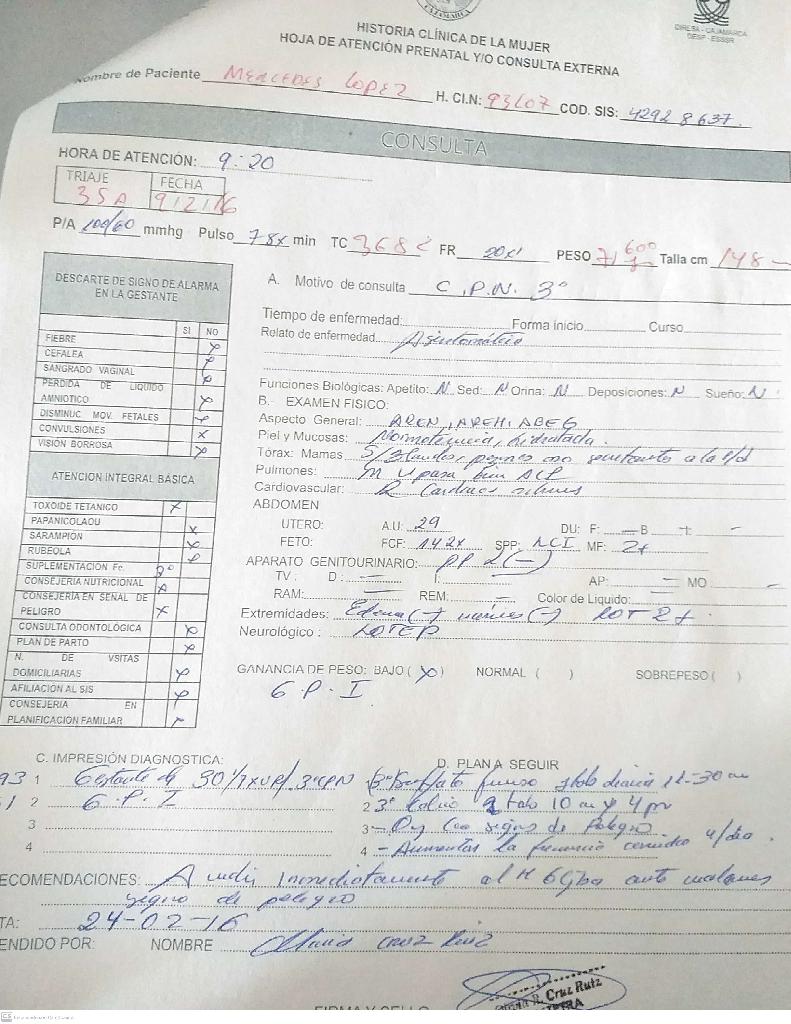 CAJAMARCA
DIRESA - CAJAMARCA
DESP - ESSSR
HISTORIA CLÍNICA DE LA MUJER
HOJA DE ATENCIÓN PRENATAL Y/O CONSULTA EXTERNA
Nombre de Paciente MERCEDES LOPEZ H. Cl.N: 93207 COD. SIS: 42928637.
CONSULTA
HORA DE ATENCIÓN: 9:20
TRIAJE FECHA
35A 9/2/16
P/A 100/60 mmhg Pulso 78x min TC 36.8 C FR 20x' PESO 71,600 Talla cm 148
DESCARTE DE SIGNO DE ALARMA
EN LA GESTANTE
SI NO
FIEBRE x
CEFALEA x
SANGRADO VAGINAL x
PERDIDA DE LIQUIDO
AMNIOTICO x
DISMINUC. MOV. FETALES x
CONVULSIONES x
VISION BORROSA x
ATENCION INTEGRAL BÁSICA
TOXOIDE TETANICO x
PAPANICOLAOU x
SARAMPIÓN x
RUBEOLA x
SUPLEMENTACION Fe. 3°
CONSEJERIA NUTRICIONAL x
CONSEJERIA EN SEÑAL DE
PELIGRO x
CONSULTA ODONTOLÓGICA x
PLAN DE PARTO x
N. DE VSITAS
DOMICILIARIAS x
AFILIACION AL SIS x
CONSEJERIA EN
PLANIFICACION FAMILIAR x
A. Motivo de consulta C.P.N. 3°
Tiempo de enfermedad: Forma inicio Curso
Relato de enfermedad Asintomática
Funciones Biológicas: Apetito: N Sed: N Orina: N Deposiciones: N Sueño: N
B.- EXAMEN FISICO:
Aspecto General: AREN, AREH, ABEG
Piel y Mucosas: Normotermica, hidratada.
Tórax: Mamas S/ Blandas, pezones
Pulmones: m V pasa bien ACP
Cardiovascular: R Cardiacos
ABDOMEN
UTERO: A.U: 29 DU: F: — B + -
FETO: FCF: 142x SPP: LCI MF: 2+
APARATO GENITOURINARIO: PPL (-)
TV: D: — I: — AP: — MO -
RAM: — REM: — Color de Liquido: —
Extremidades: Edema (-) varices (-) ROT 2+
Neurológico: LOTEP
GANANCIA DE PESO: BAJO ( x ) NORMAL ( ) SOBREPESO ( )
G.P.I
C. IMPRESIÓN DIAGNOSTICA:
1 Gestante de 30 x UR/ 3° CPN
2 G.P.I
3
4
D. PLAN A SEGUIR
3° Sulfato ferroso 1tab diaria 11-30 am
2 3° Calcio 2 tab 10 am y 4 pm
3 - signos de Peligro
4 - Aumentar la frecuencia comidas 4/dia.
ECOMENDACIONES: Acudir Inmediatamente al H ante
signo de peligro
TA: 24-02-16
ENDIDO POR: NOMBRE Cruz Ruiz
R. Cruz Ruiz
FIRMA Y SELLO
CS